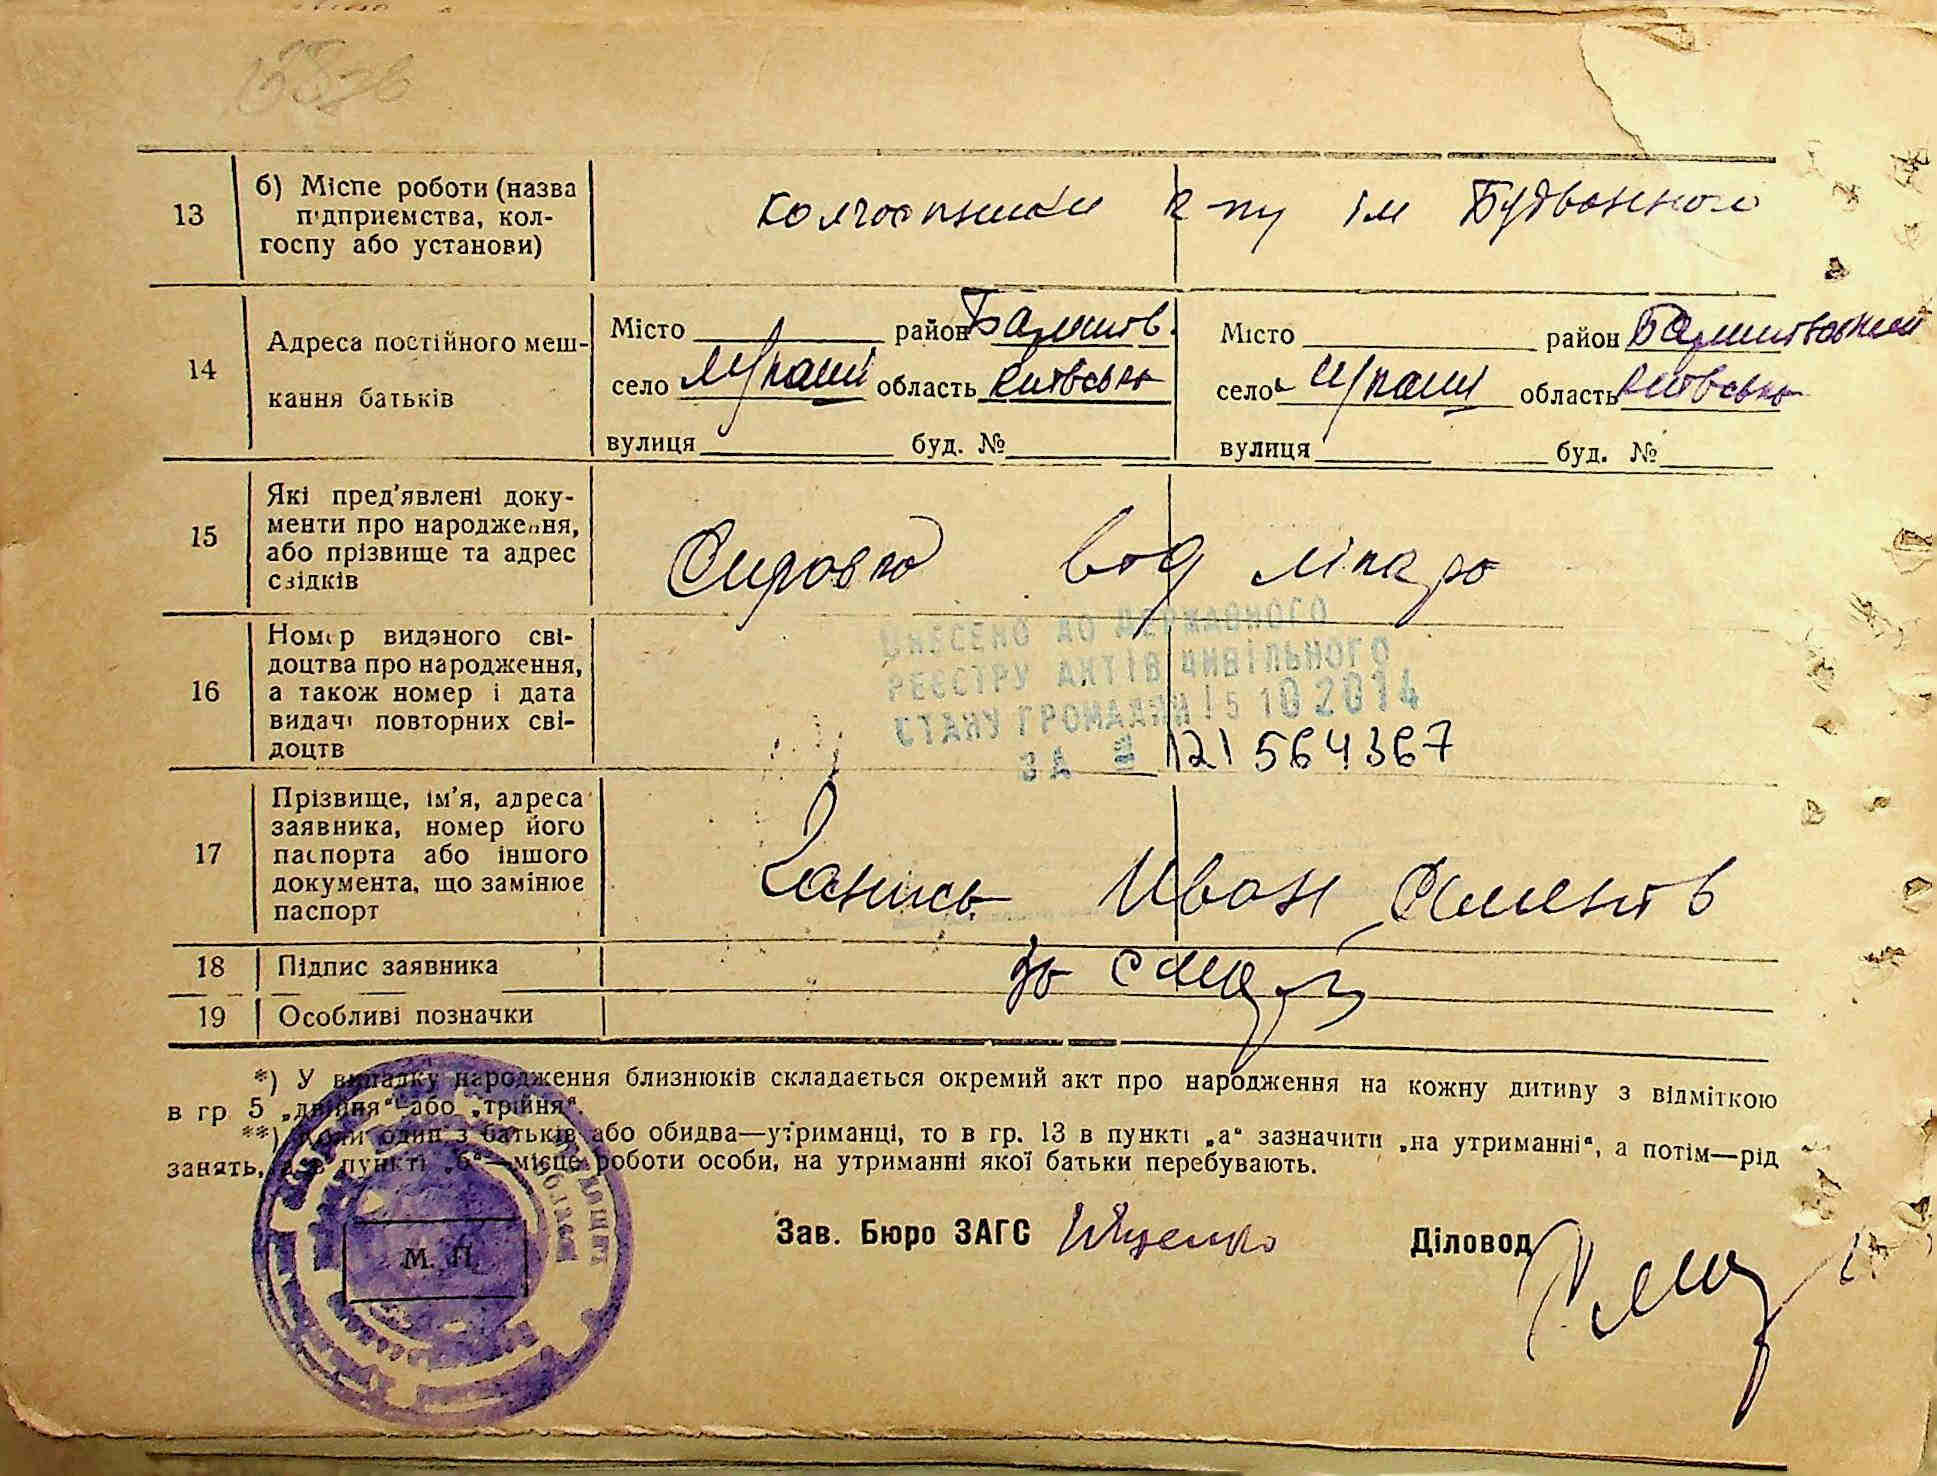 13
б) Місце роботи (назва
підприємства, кол-
госпу або установи)
колгоспники к-пу ім Будьонного
14
Адреса постійного меш-
кання батьків
Місто район Баришів.
село область Київська
вулиця буд. №
Місто район Баришівський
село область Київська
вулиця буд. №
15
Які пред'явлені доку-
менти про народження,
або прізвище та адрес
свідків
від лікаря
16
Номер виданого сві-
доцтва про народження,
а також номер і дата
видачі повторних сві-
доцтв
ВНЕСЕНО ДО ДЕРЖАВНОГО
РЕЄСТРУ АКТІВ ЦИВІЛЬНОГО
СТАНУ ГРОМАДЯН 15 10 2014
ЗА № 121564367
17
Прізвище, ім'я, адреса
заявника, номер його
паспорта або іншого
документа, що замінює
паспорт
Иван
18
Підпис заявника
19
Особливі позначки
*) У випадку народження близнюків складається окремий акт про народження на кожну дитину з відміткою
в гр 5 „двійня“ або „трійня“.
**) Коли один з батьків або обидва—утриманці, то в гр. 13 в пункті „а“ зазначити „на утриманні“, а потім—рід
занять, а в пункті „б“—місце роботи особи, на утриманні якої батьки перебувають.
М. П.
Зав. Бюро ЗАГС Іщенко
Діловод